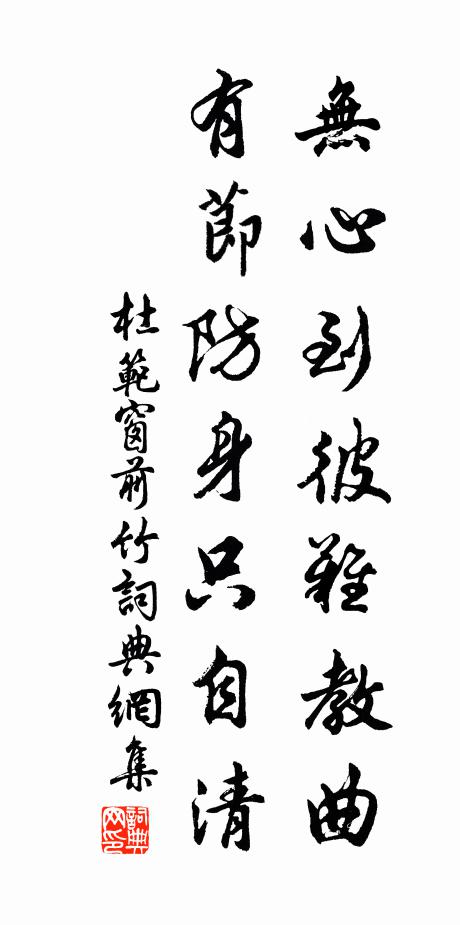 無心到彼難教曲
有節防身只自清
杜範窗前竹詞典網集
詞典网印